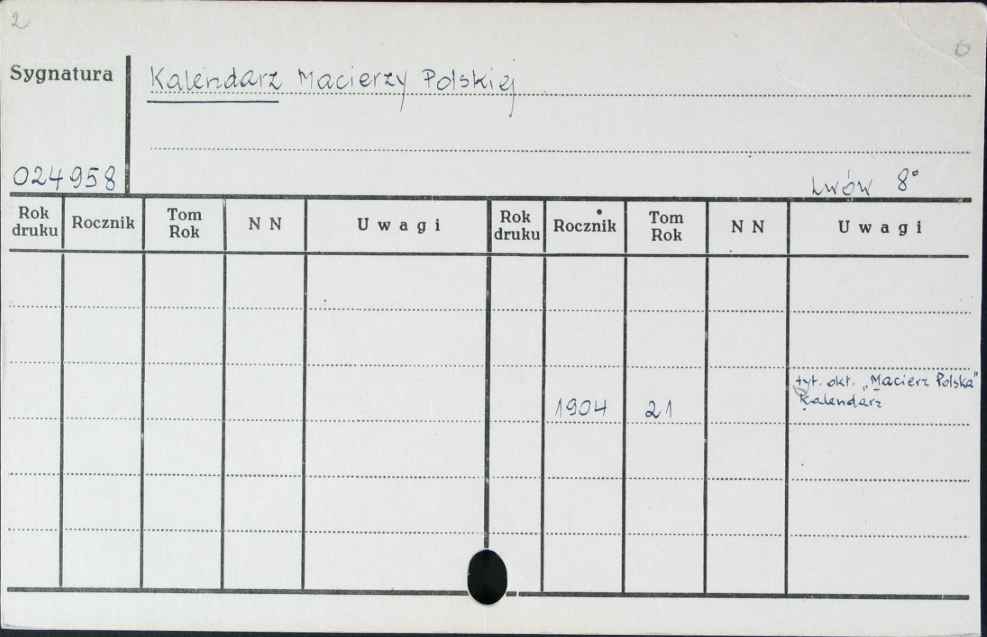 2
6
Sygnatura
Kalendarz Macierzy Polskiej
024958
Lwów 8°
Rok druku Rocznik Tom Rok N N Uwagi Rok druku Rocznik Tom Rok N N Uwagi
1904 21 tyt. okł. „Macierz Polska"
Kalendarz